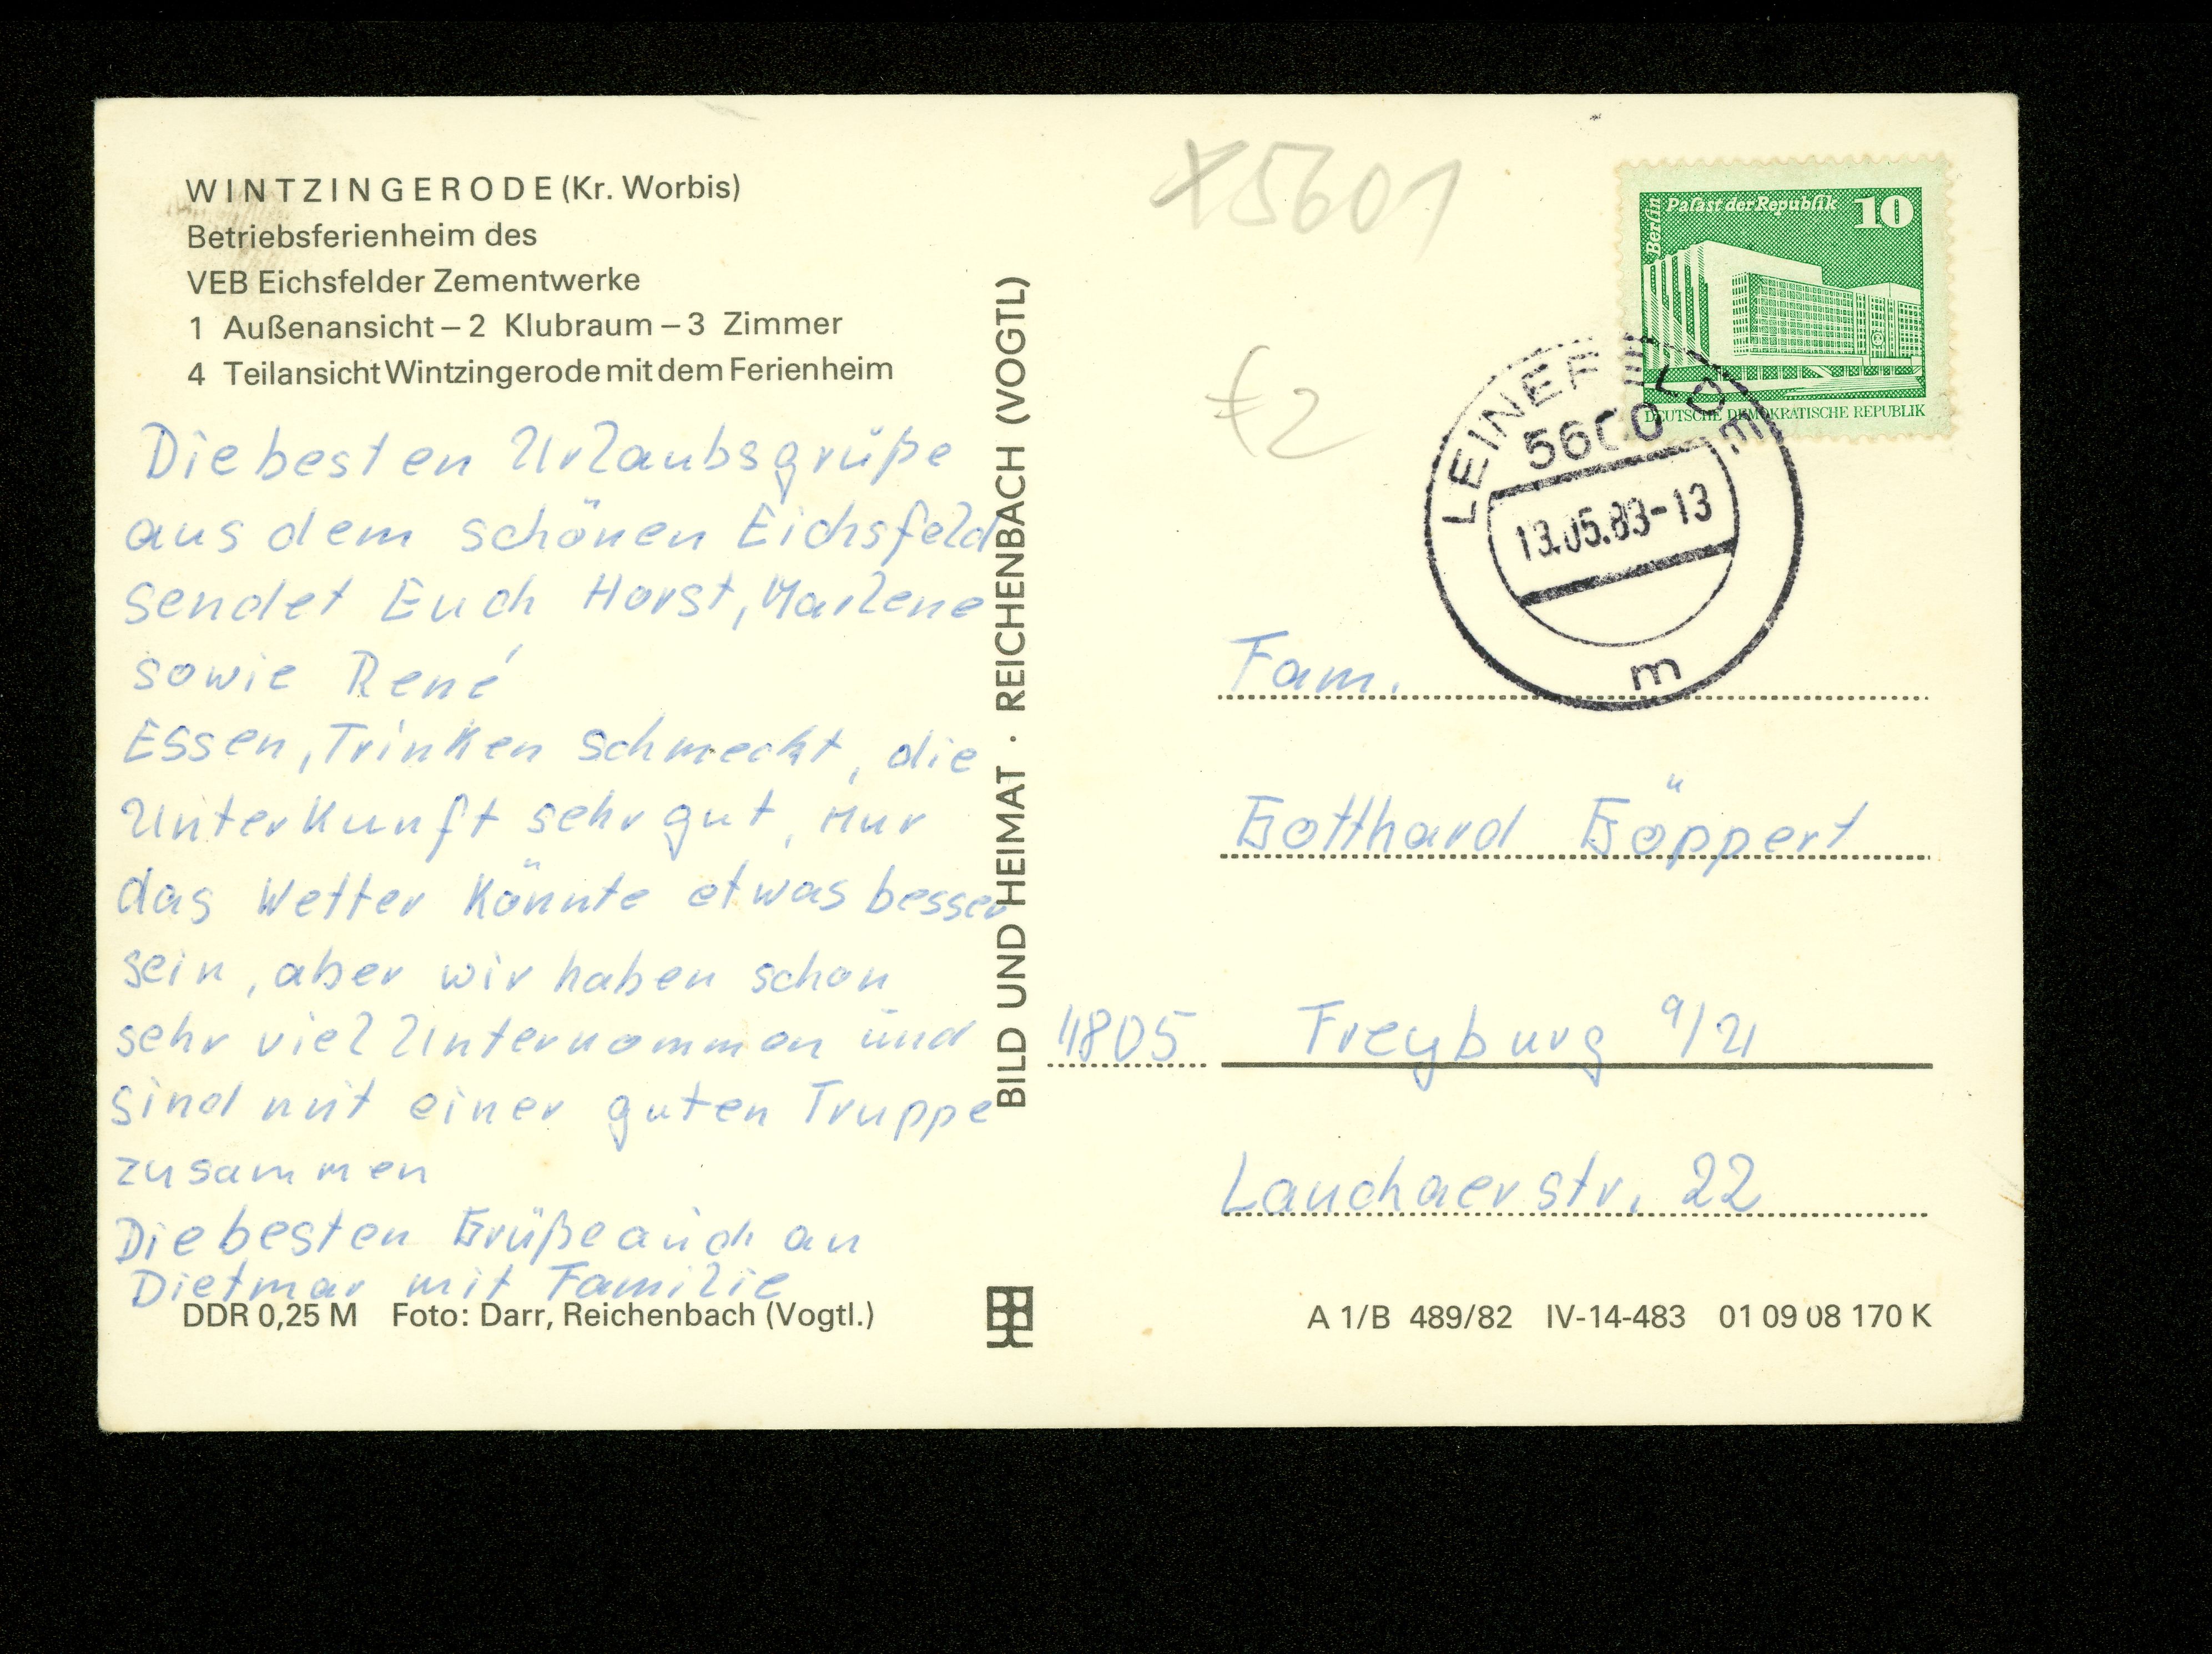 WINTZINGERODE (Kr. Worbis)
Betriebsferienheim des
VEB Eichsfelder Zementwerke
1 Außenansicht – 2 Klubraum – 3 Zimmer
4 Teilansicht Wintzingerode mit dem Ferienheim
Die besten Urlaubsgrüße
aus dem schönen Eichsfeld
sendet Euch Horst, Marlene
sowie René
Essen, Trinken schmeckt, die
Unterkunft sehr gut, nur
das Wetter könnte etwas besser
sein, aber wir haben schon
sehr viel Unternommen und
sind mit einer guten Truppe
zusammen
Die besten Grüße auch an
Dietmar mit Familie
DDR 0,25 M Foto: Darr, Reichenbach (Vogtl.)
BILD UND HEIMAT · REICHENBACH (VOGTL)
X5601
€2
Berlin
Palast der Republik 10
DEUTSCHE DEMOKRATISCHE REPUBLIK
LEINEFELDE
5600
13.05.83-13
m
Fam.
Gotthard Göppert
4805 Freyburg 9/21
Lauchaerstr. 22
A 1/B 489/82 IV-14-483 01 09 08 170 K